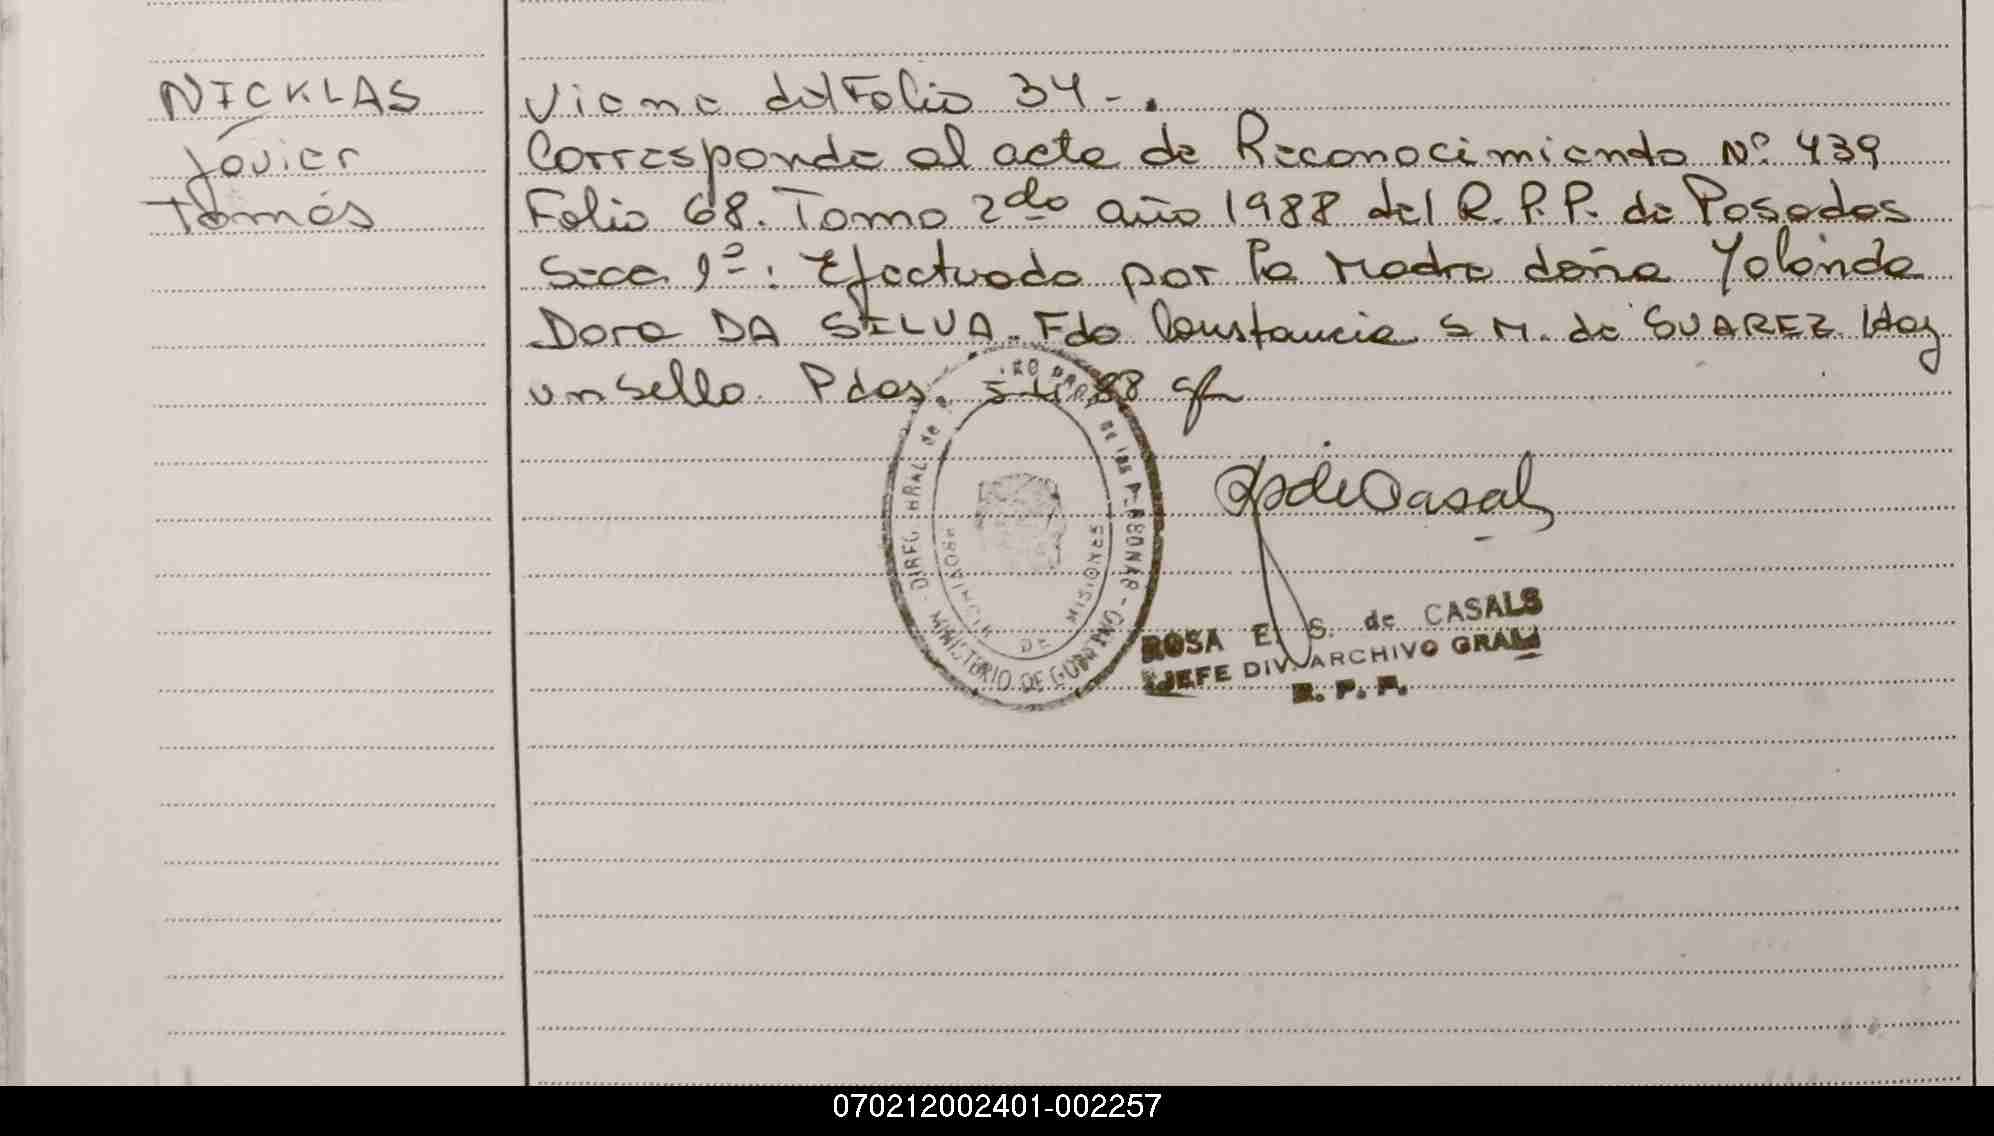 NICKLAS
Javier
Tomás
Viene del Folio 34-.
Corresponde al acta de Reconocimiento Nº 439
Folio 68. Tomo 2do año 1988 del R.P.P. de Posadas
Secc 1ª: Efectuado por la Madre doña Yolanda
Dora DA SILVA. Fdo Constancia S M. de SUAREZ. Hay
un Sello. Pdas. 88
DIREC. GRAL de PROV. DE LAS PERSONAS - MINISTERIO DE GOBIERNO
PROVINCIA DE MISIONES
ROSA E. S. de CASALS
JEFE DIV. ARCHIVO GRAL
R. P. P.
070212002401-002257